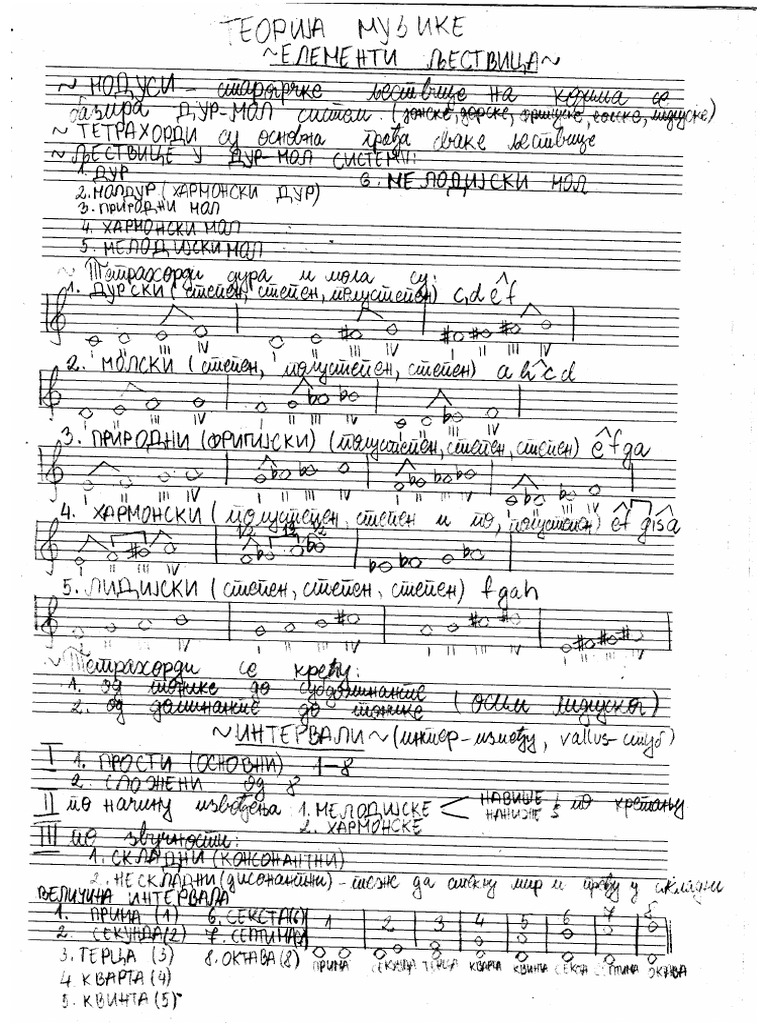 ТЕОРИЈА МУЗИКЕ
~ЕЛЕМЕНТИ ЉЕСТВИЦА~
~ МОДУСИ - старогрчке љествице на којима се
базира ДУР-МОЛ систем. (јонске, дорске, фригијске, еолске, лидијске)
~ ТЕТРАХОРДИ су основна грађа сваке љествице
~ ЉЕСТВИЦЕ У ДУР-МОЛ СИСТЕМУ:
1. ДУР 6. МЕЛОДИЈСКИ МОЛ
2. МОЛДУР (ХАРМОНСКИ ДУР)
3. ПРИРОДНИ МОЛ
4. ХАРМОНСКИ МОЛ
5. МЕЛОДИЈСКИ МОЛ
~ Тетрахорди дура и мола су:
1. ДУРСКИ (степен, степен, полустепен) c, d e f
I II III IV I II III IV I II III IV
2. МОЛСКИ (степен, полустепен, степен) a h c d
I II III IV I II III IV I II III IV
3. ПРИРОДНИ (ФРИГИЈСКИ) (полустепен, степен, степен) e f g a
I II III IV I II III IV I II III IV I II III IV
4. ХАРМОНСКИ (полустепен, степен и по, полустепен) e f gis a
1/2 1/2
I II III IV I II III IV
5. ЛИДИЈСКИ (степен, степен, степен) f g a h
I II III IV I II III IV I II III IV I II III IV
~ Тетрахорди се крећу:
1. од тонике до субдоминанте
2. од доминанте до тонике (осим лидијског)
~ИНТЕРВАЛИ~ (интер-између, vallus-стуб)
I 1. ПРОСТИ (ОСНОВНИ) 1-8
2. СЛОЖЕНИ од 8
II по начину извођења 1. МЕЛОДИЈСКЕ < НАВИШЕ НАНИЖЕ } по кретању
2. ХАРМОНСКЕ
III по звучности:
1. СКЛАДНИ (КОНСОНАНТНИ)
2. НЕСКЛАДНИ (дисонантни) - теже да стекну мир и пређу у складни
ВЕЛИЧИНА ИНТЕРВАЛА
1. ПРИМА (1) 6. СЕКСТА (6) 1 2 3 4 5 6 7 8
2. СЕКУНДА (2) 7. СЕПТИМА (7)
3. ТЕРЦА (3) 8. ОКТАВА (8) ПРИМА СЕКУНДА ТЕРЦА КВАРТА КВИНТА СЕКСТА СЕПТИМА ОКТАВА
4. КВАРТА (4)
5. КВИНТА (5)